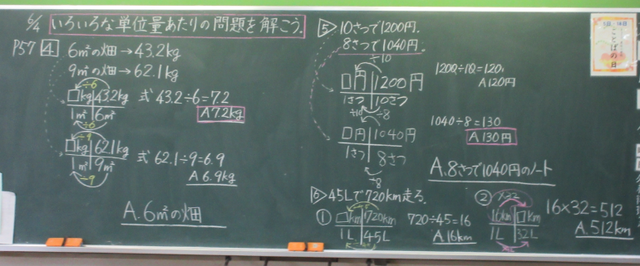 6/4 いろいろな単位量あたりの問題を解こう。
P57 4 6m²の畑→43.2kg
9m²の畑→62.1kg
÷6
□kg 43.2kg
1m² 6m²
÷6
式 43.2÷6=7.2
A 7.2kg
÷9
□kg 62.1kg
1m² 9m²
÷9
式 62.1÷9=6.9
A 6.9kg
A.6m²の畑
5 10さつで1200円。
8さつで1040円。
÷10
□円 1200円
1さつ 10さつ
÷10
1200÷10=120
A120円
÷8
□円 1040円
1さつ 8さつ
÷8
1040÷8=130
A 130円
A.8さつで1040円のノート
6 45Lで720km走る。
① □km 720km
1L 45L
720÷45=16
A 16km
② ×32
16km □km
1L 32L
16×32=512
A.512km
ことばの日